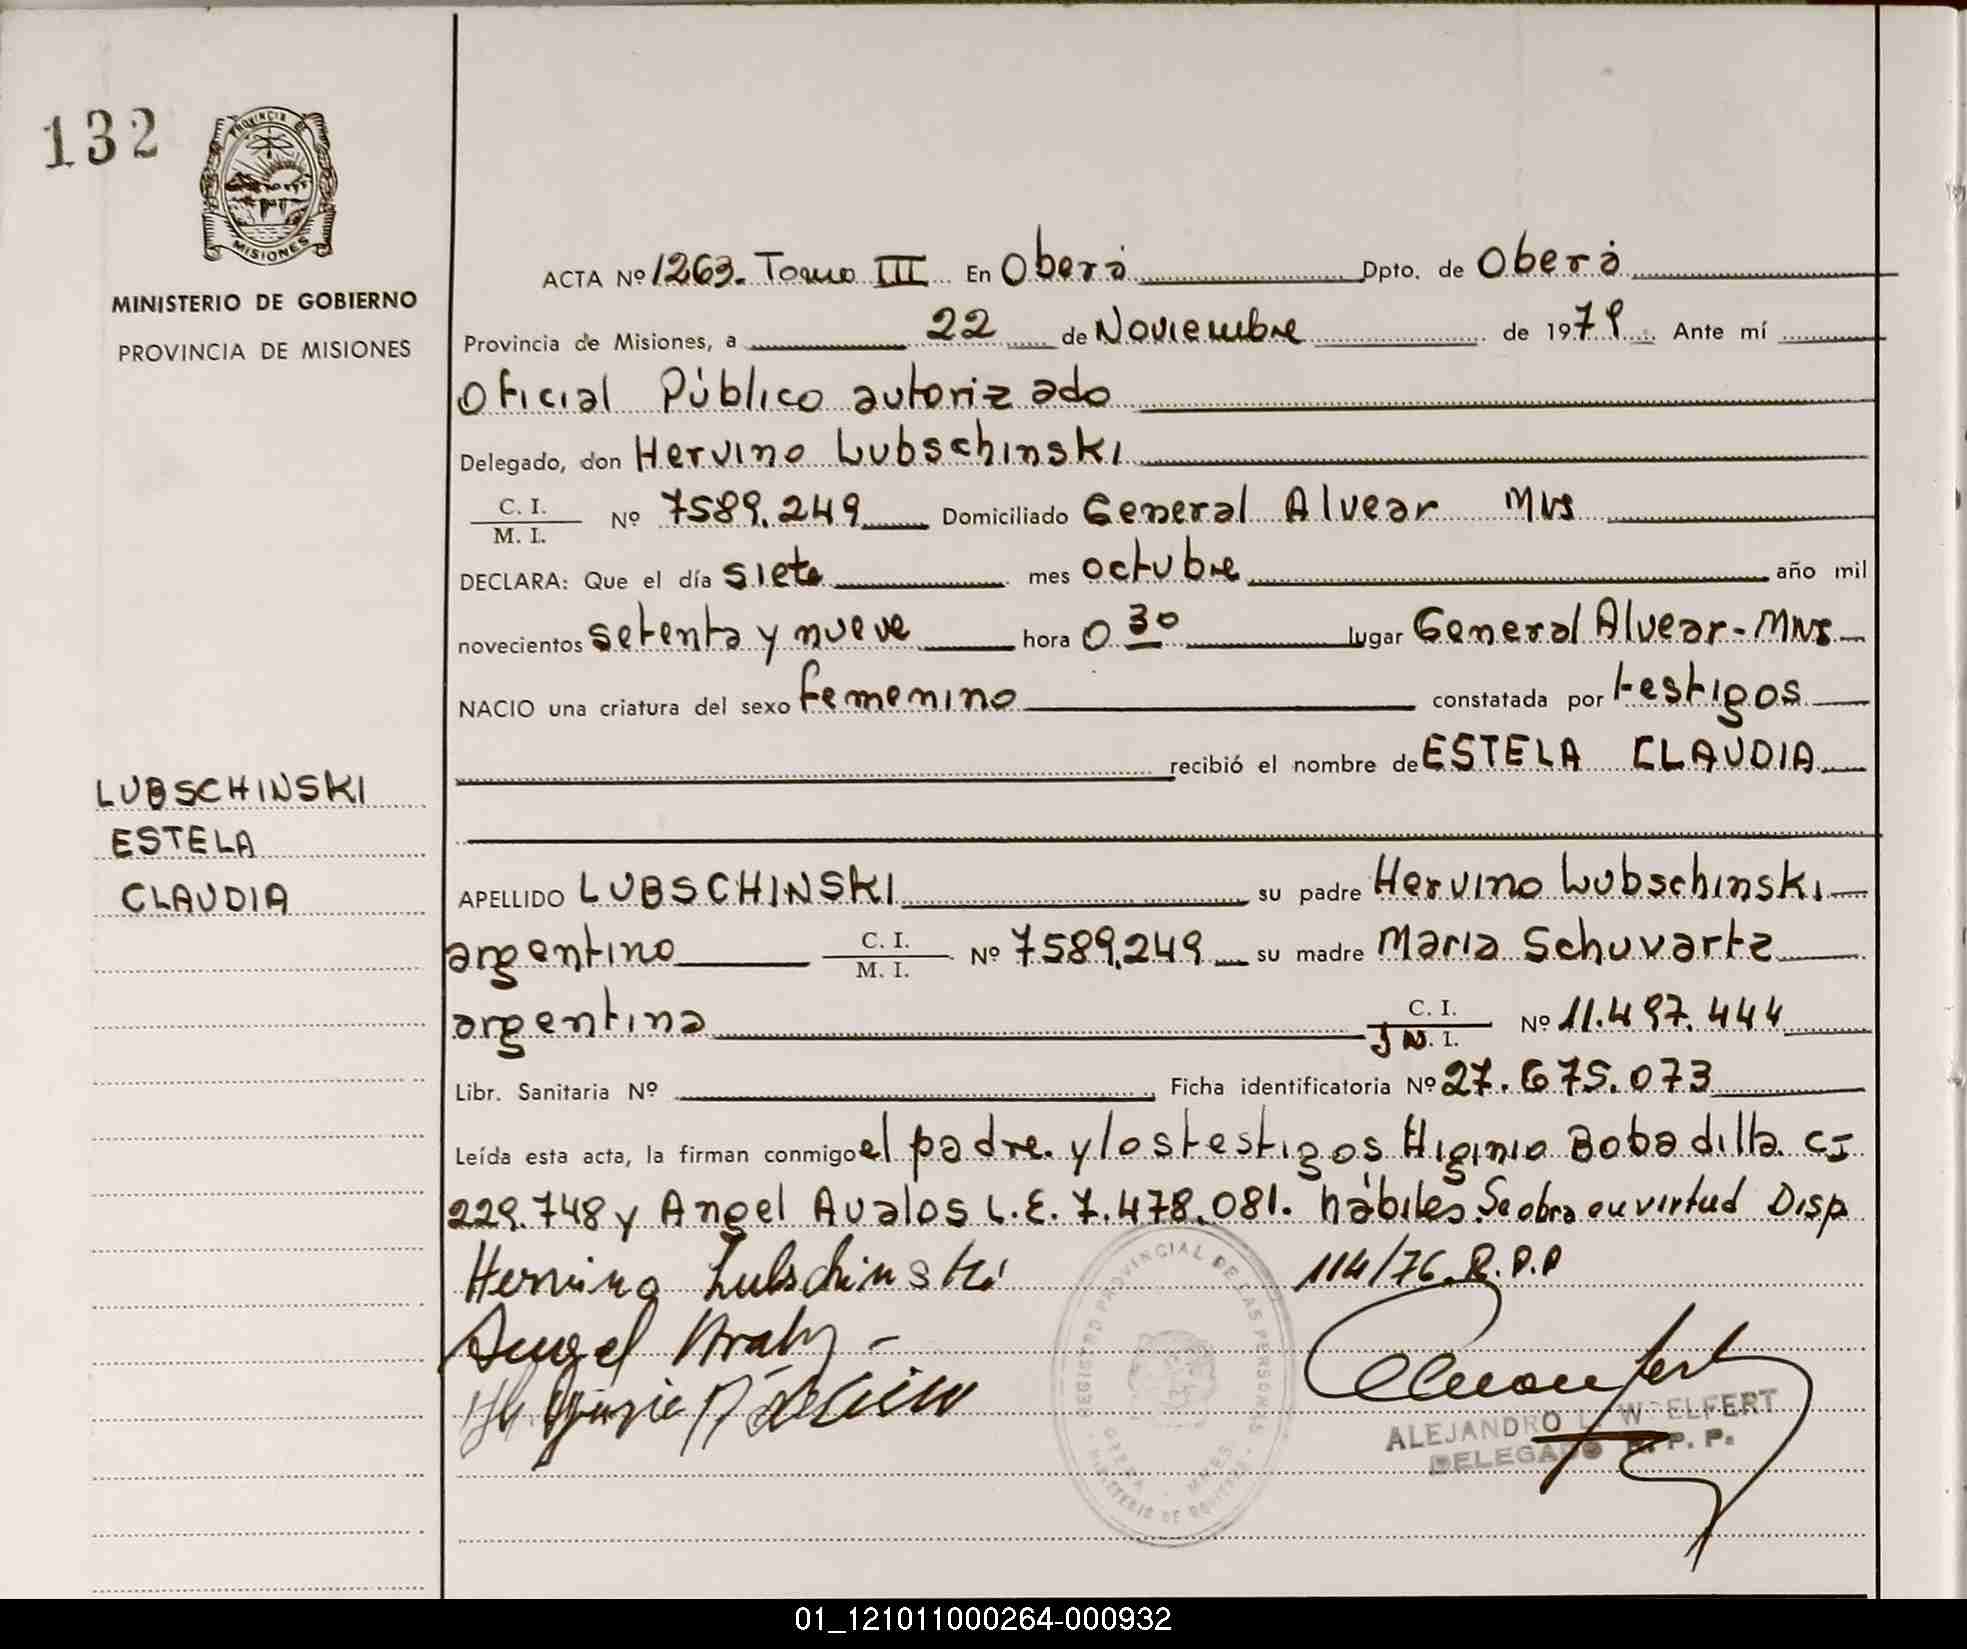 132
PROVINCIA DE
MISIONES
MINISTERIO DE GOBIERNO
PROVINCIA DE MISIONES
ACTA Nº 1263. Tomo III En Oberá Dpto. de Oberá
Provincia de Misiones, a 22 de Noviembre de 1979. Ante mí
Oficial Público autorizado
Delegado, don Hervino Lubschinski
C. I.
M. I.
Nº 7589.249 Domiciliado General Alvear Mns
DECLARA: Que el día siete mes octubre año mil
novecientos setenta y nueve hora 0 30 lugar General Alvear-Mns
NACIO una criatura del sexo femenino constatada por testigos
recibió el nombre de ESTELA CLAUDIA
LUBSCHINSKI
ESTELA
CLAUDIA
APELLIDO LUBSCHINSKI su padre Hervino Lubschinski
argentino C. I. M. I. Nº 7589.249 su madre Maria Schuvartz
argentina C. I. Nº 11.497.444
Libr. Sanitaria Nº Ficha identificatoria Nº 27.675.073
Leída esta acta, la firman conmigo el padre y los testigos Higinio Bobadilla CI
229.748 y Angel Avalos L.E. 7.478.081. hábiles. Se obra en virtud Disp
114/76. R.P.P
Hervino Lubschinski
Angel
REGISTRO PROVINCIAL DE LAS PERSONAS
OBERA - MNES.
MINISTERIO DE GOBIERNO
ALEJANDRO L. WOELFERT
DELEGADO R. P. P.
01_121011000264-000932